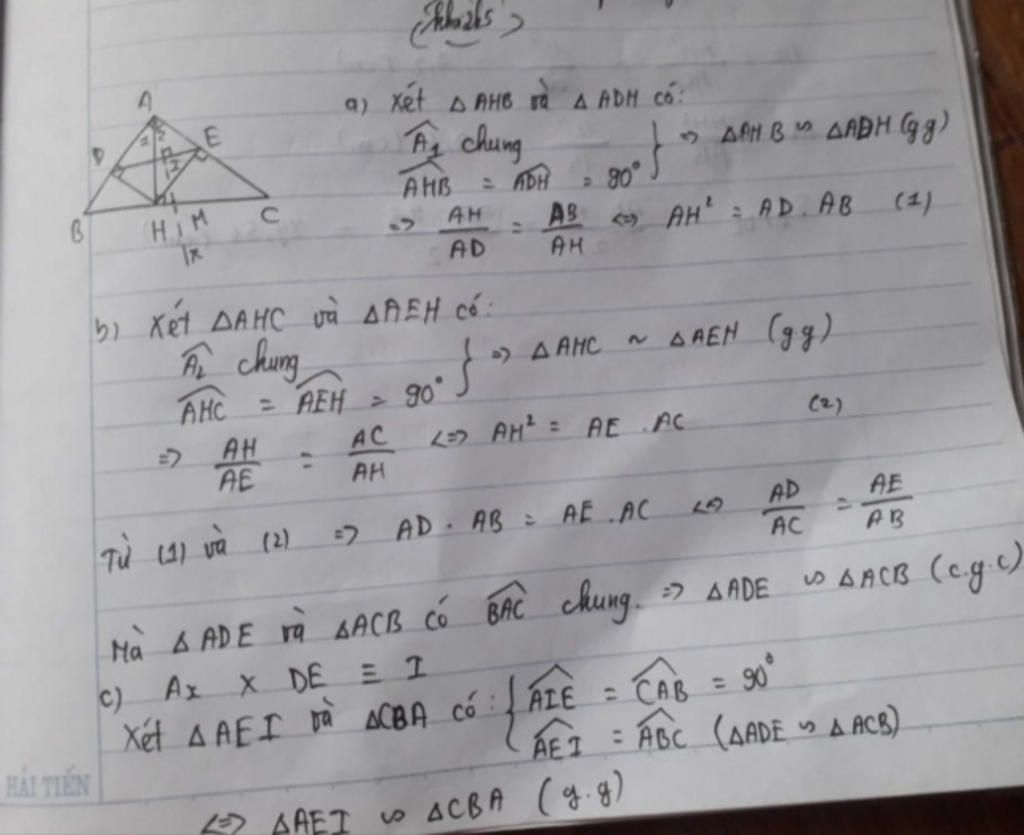 A
E
D
1 2
I
B
H
M
C
x
a) Xét △AHB và △ADH có:
Â₁ chung
AHB = ADH = 90° } => △AHB ∽ △ADH (gg)
=> AH/AD = AB/AH <=> AH² = AD . AB (1)
b) Xét △AHC và △AEH có:
Â₂ chung
AHC = AEH = 90° } => △AHC ~ △AEH (gg)
=> AH/AE = AC/AH <=> AH² = AE . AC (2)
Từ (1) và (2) => AD . AB = AE . AC <=> AD/AC = AE/AB
Mà △ADE và △ACB có BAC chung. => △ADE ∽ △ACB (c.g.c)
c) Ax × DE ≡ I
Xét △AEI và △CBA có: { AIE = CAB = 90°
AEI = ABC (△ADE ∽ △ACB)
<=> △AEI ∽ △CBA (g.g)
HẢI TIẾN